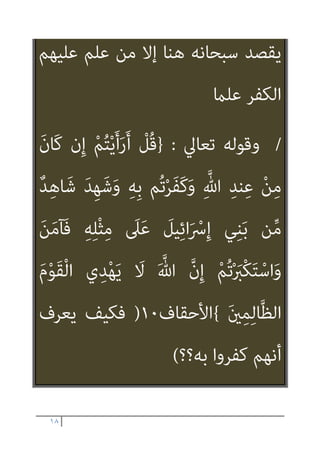 يقصد سبحانه هنا إلا من علم عليهم
الكفر علما
/ وقوله تعالي : {قُلْ أَرَأَيْتُمْ إِن كَانَ
مِنْ عِندِ اللَّهِ وَكَفَرْتُم بِهِ وَشَهِدَ شَاهِدٌ
مِّن بَنِي إِسْرَائِيلَ عَلَى مِثْلِهِ فَآمَنَ
وَاسْتَكْبَرْتُمْ إِنَّ اللَّهَ لَا يَهْدِي الْقَوْمَ
الظَّالِمِينَ {الأحقاف١٠( فكيف يعرف
أنهم كفروا به؟؟)
١٨